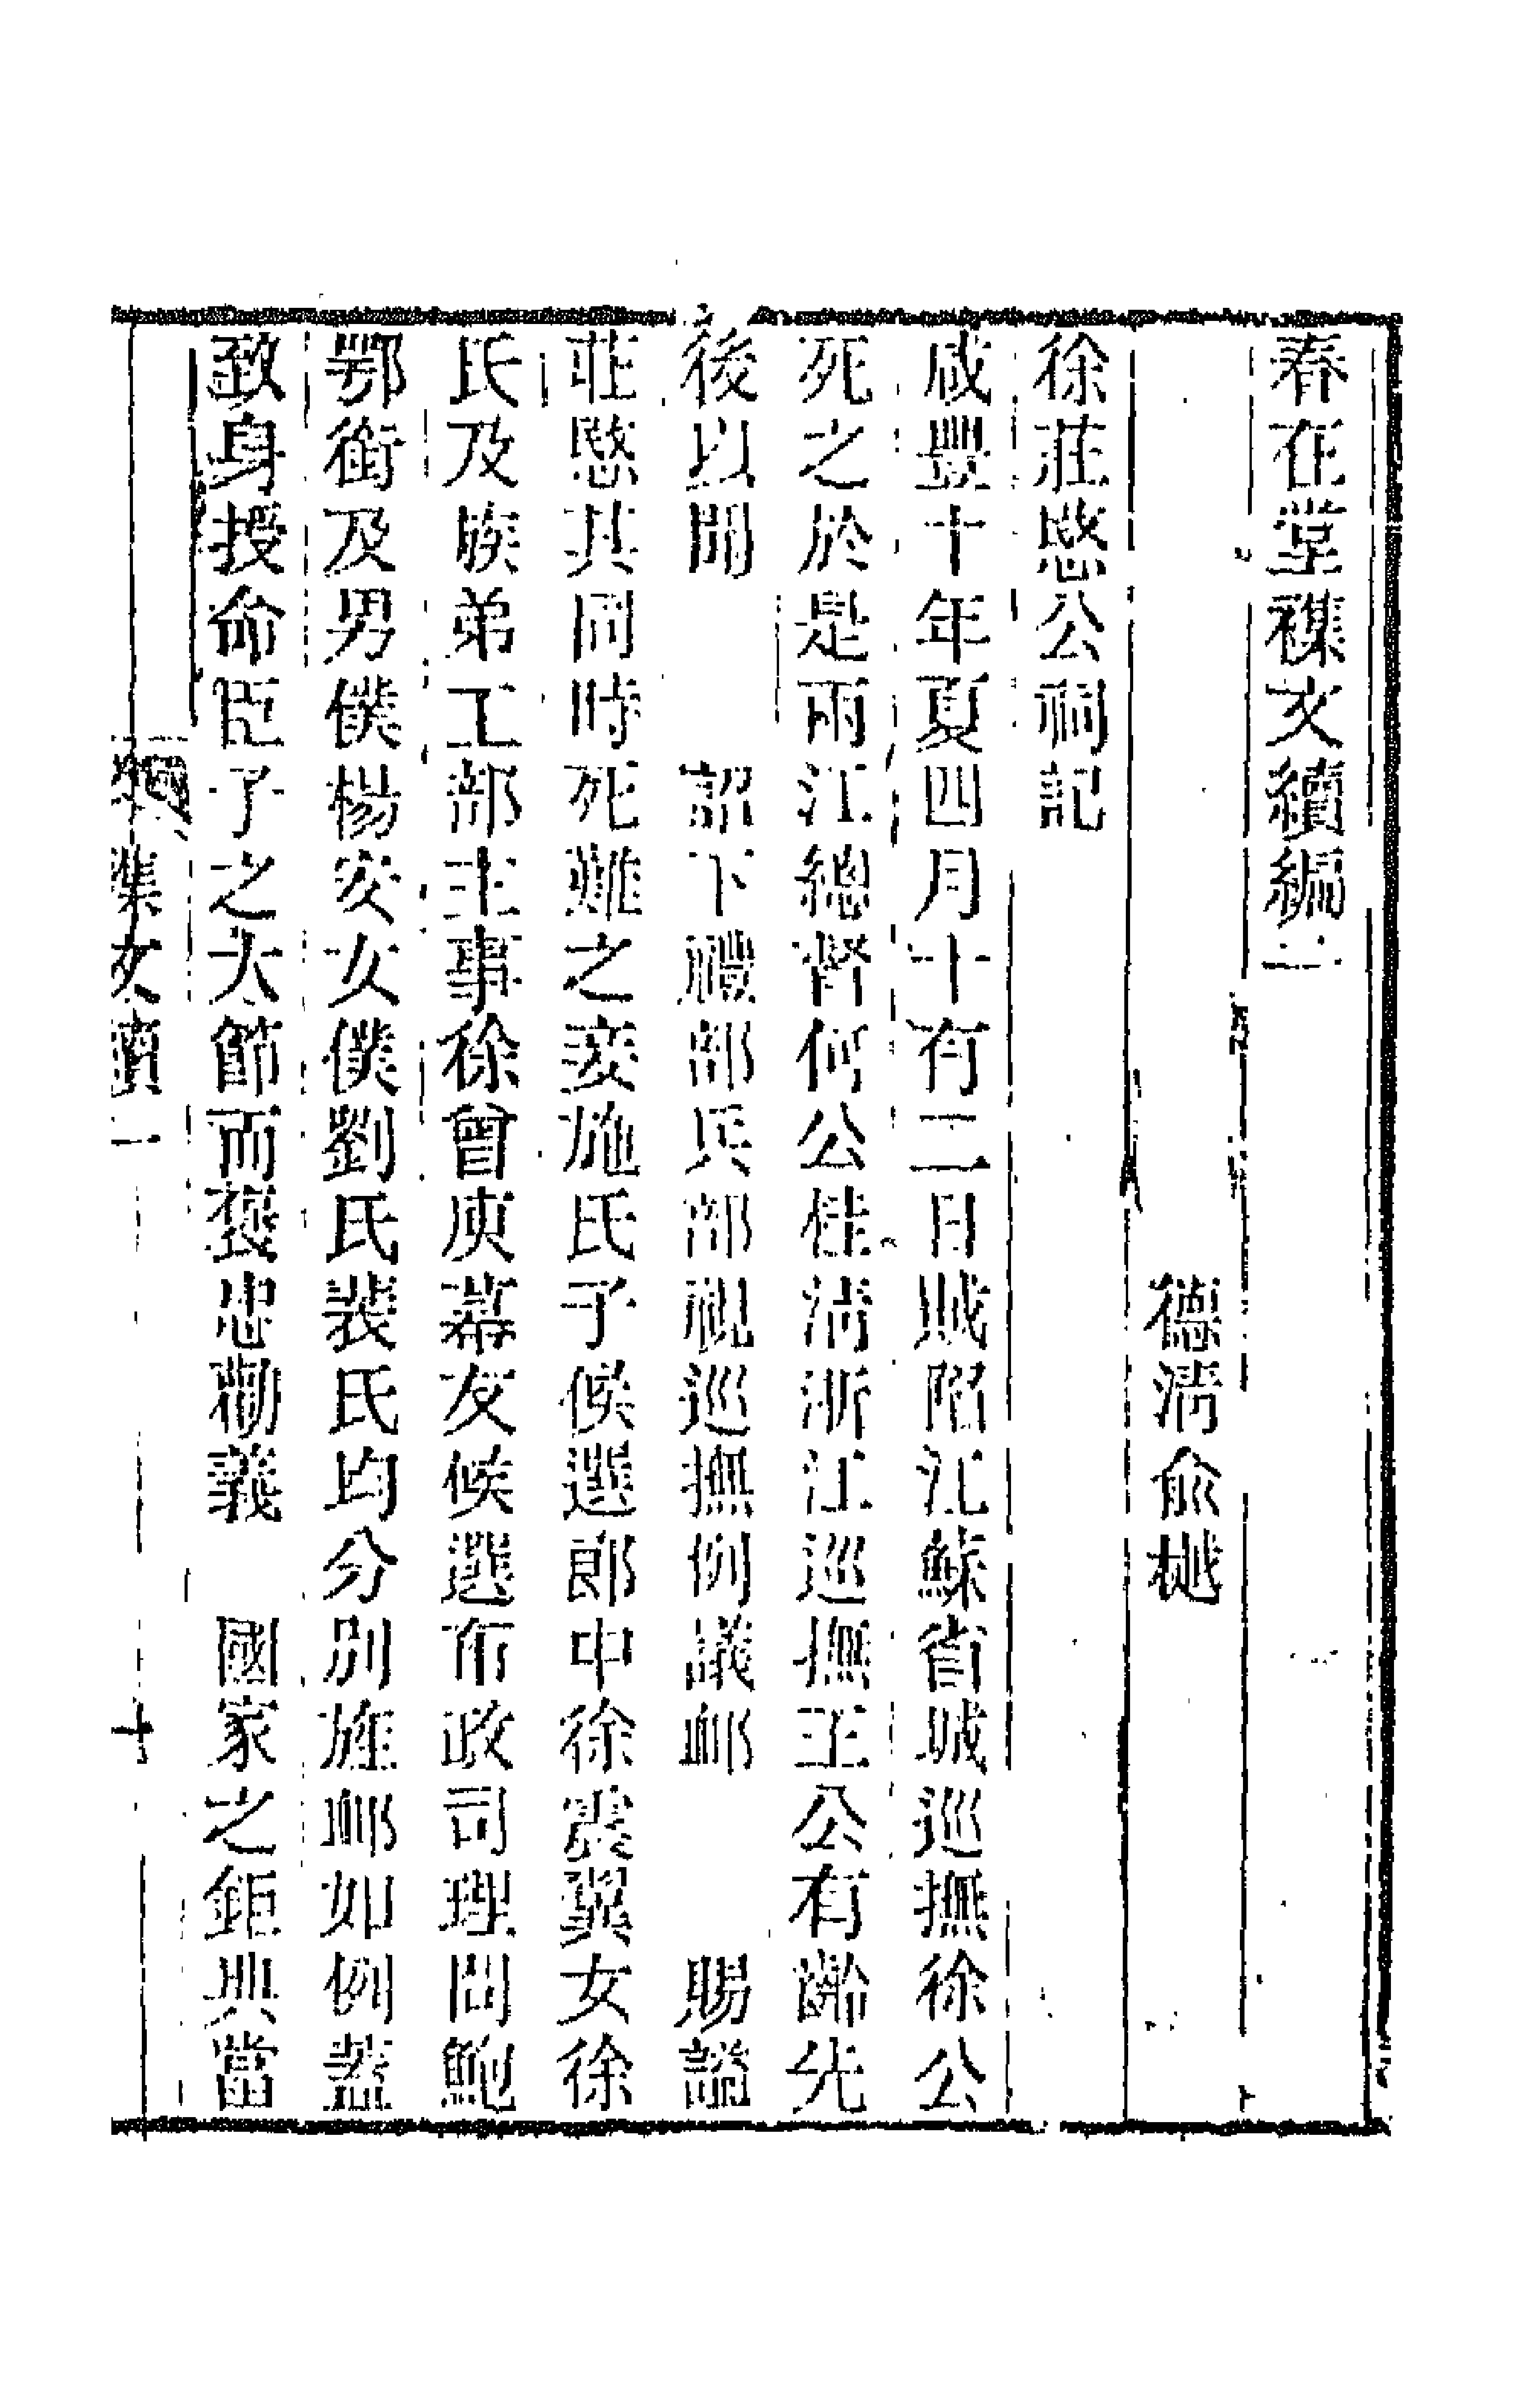 春在堂襍文續編二
德淸俞樾
徐莊愍公祠記
咸豐十年夏四月十有二日賊陷江蘇省城巡撫徐公
死之於是兩江總督何公桂淸浙江巡撫王公有齡先
後以聞　　詔下禮部兵部視巡撫例議邺　　賜諡
莊愍其同時死難之妾施氏子候選郎中徐震翼女徐
氏及族弟工部主事徐曾庾幕友候選布政司理問鮑
鄂銜及男僕楊安女僕劉氏裴氏均分別旌邺如例蓋
致身授命臣子之大節而襃忠勸義　國家之鉅典當
襍文續一